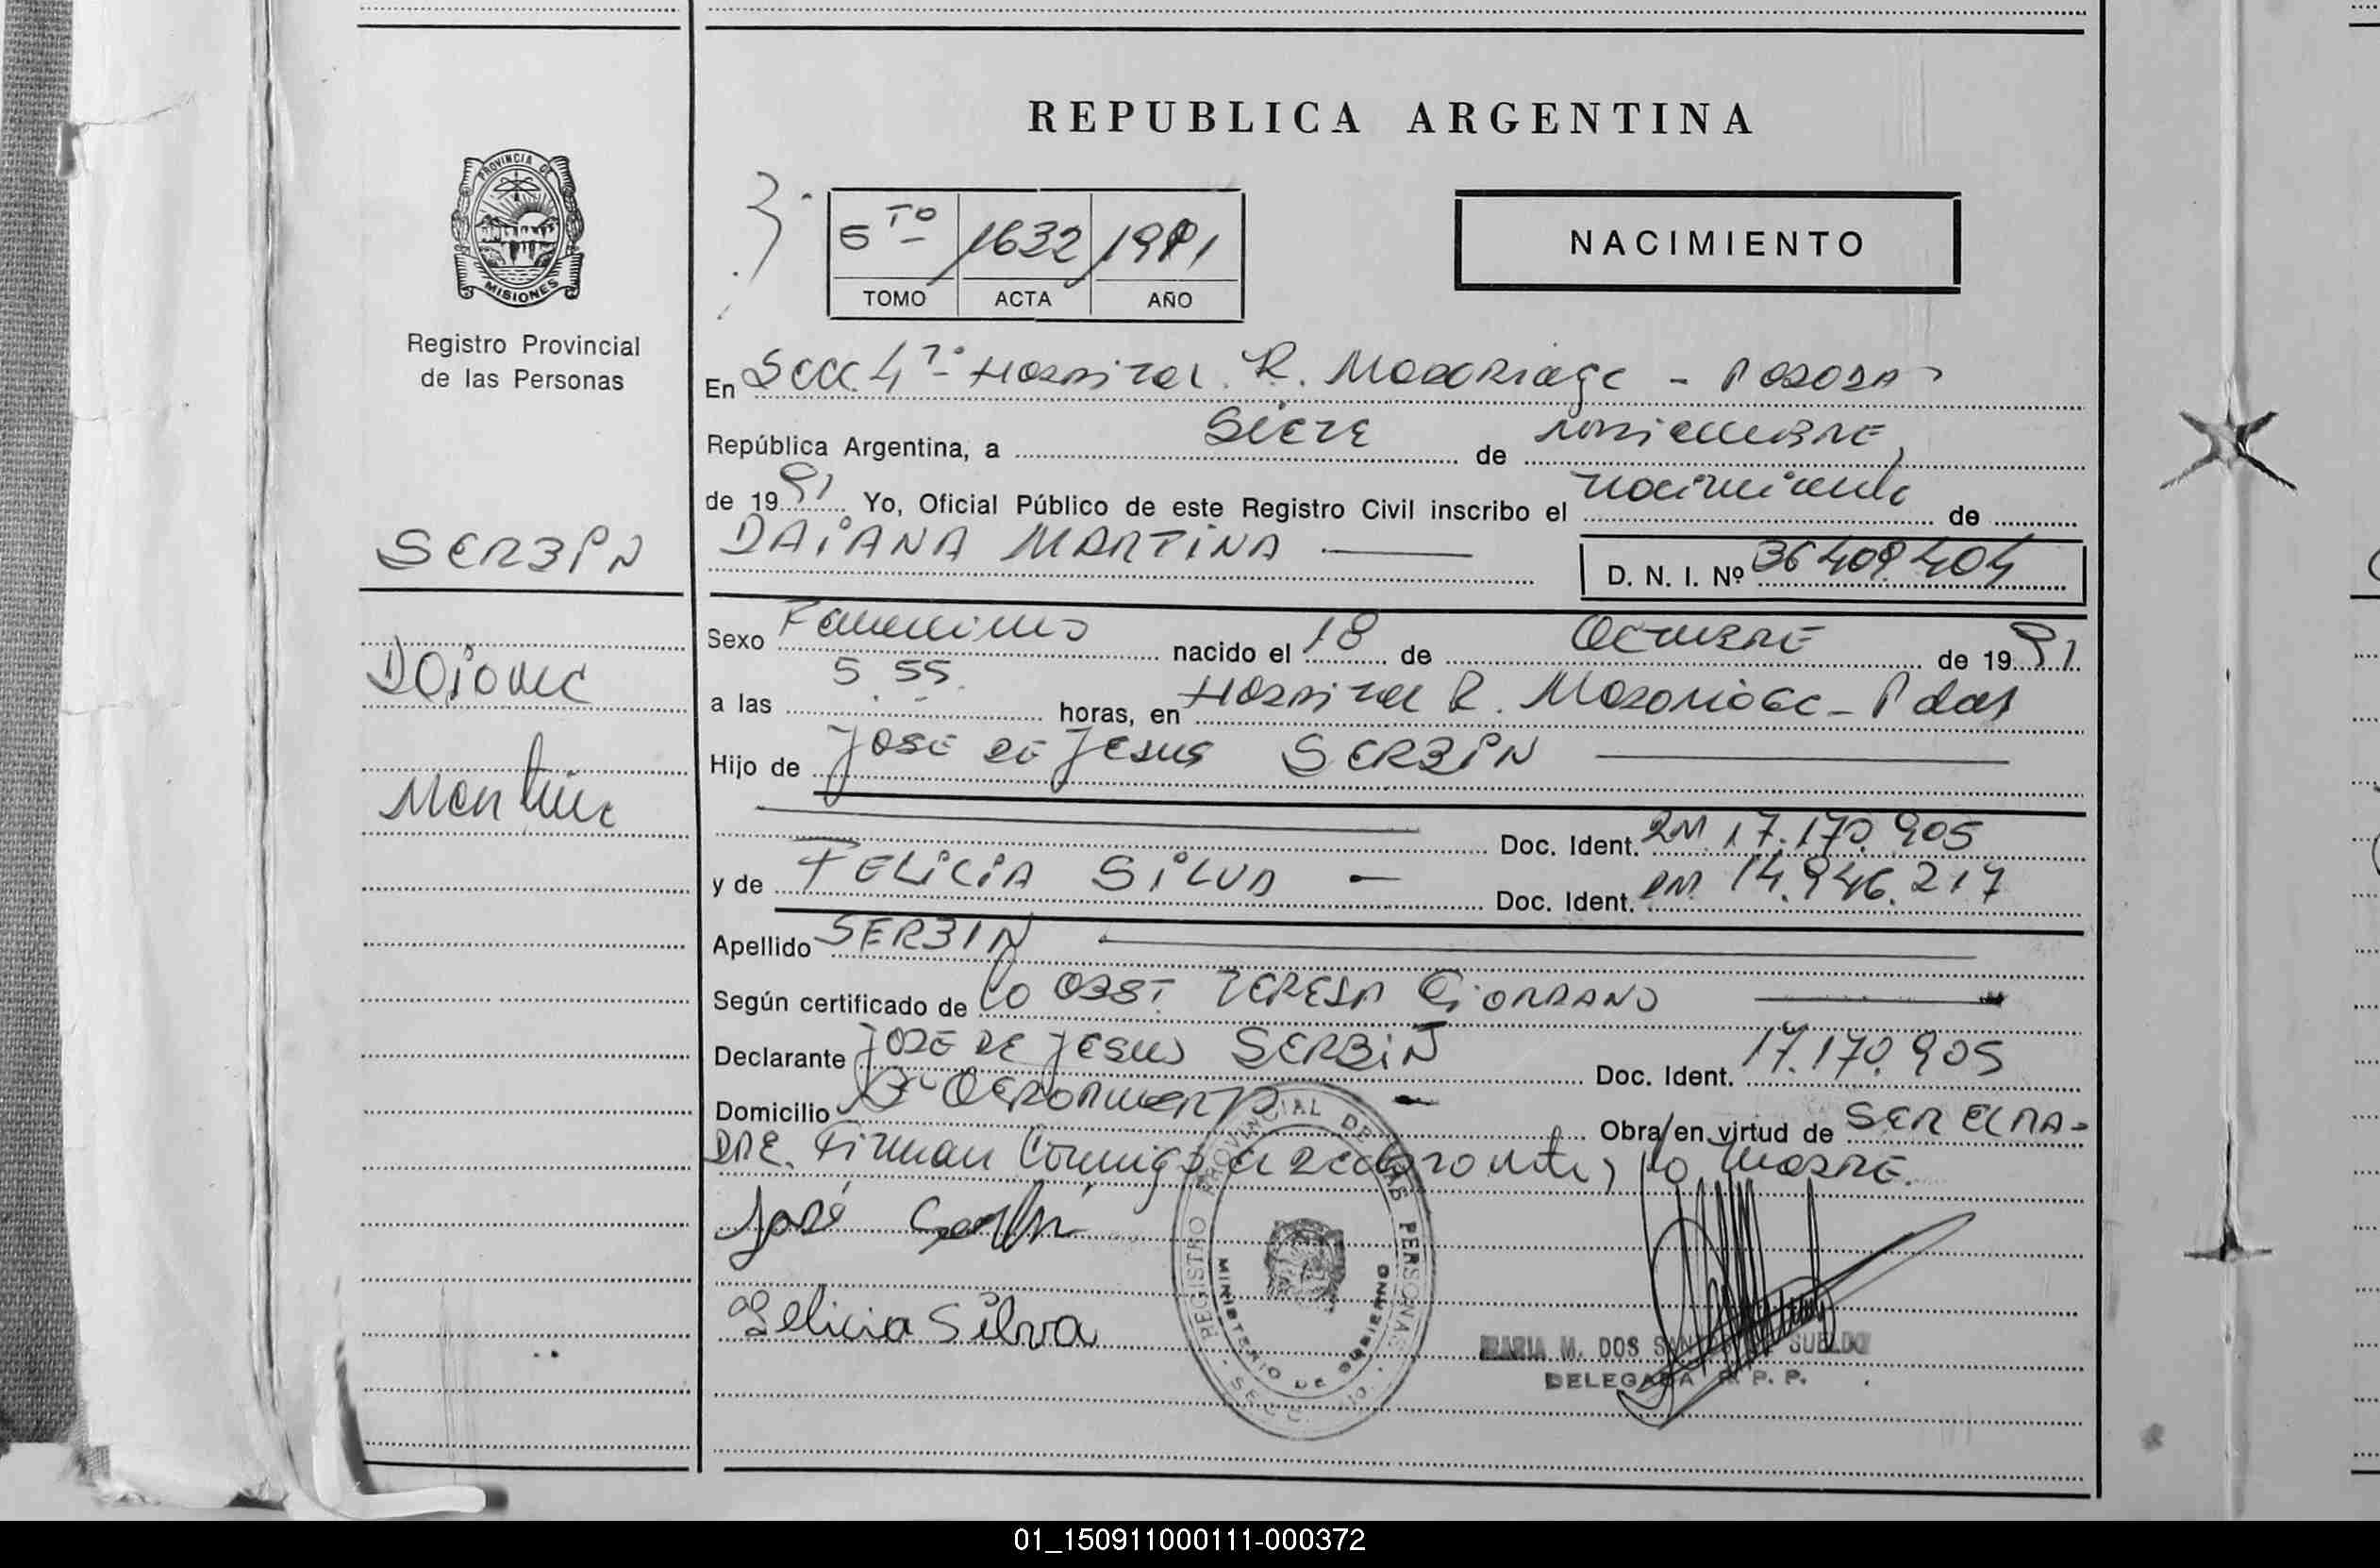 REPUBLICA ARGENTINA
PROVINCIA DE
MISIONES
Registro Provincial
de las Personas
5to 1632 1991
TOMO ACTA AÑO
NACIMIENTO
En Secc. 4ta Hospital R. Madariaga - Posadas
República Argentina, a siete de noviembre,
de 1991 Yo, Oficial Público de este Registro Civil inscribo el nacimiento de
SERBIN
DAIANA MARTINA
D. N. I. Nº 36.409.404
Sexo Femenino nacido el 18 de Octubre de 1991
Daiana
a las 5.55 horas, en Hospital R. Madariaga - Pdas
Hijo de JOSE DE JESUS SERBIN
Martina
Doc. Ident. DM 17.170.905
y de FELICIA SILVA - Doc. Ident. DM. 14.946.217
Apellido SERBIN
Según certificado de la OBST. TERESA GIORDANO
Declarante JOSE DE JESUS SERBIN Doc. Ident. 17.170.905
Domicilio Obra en virtud de SER EL PA-
DRE. Firman conmigo el declarante y la madre.
José Serbin
Felicia Silva
REGISTRO PROVINCIAL DE LAS PERSONAS
MINISTERIO DE GOBIERNO
MARIA M. DOS SUELDO
DELEGADA R. P. P.
01_150911000111-000372